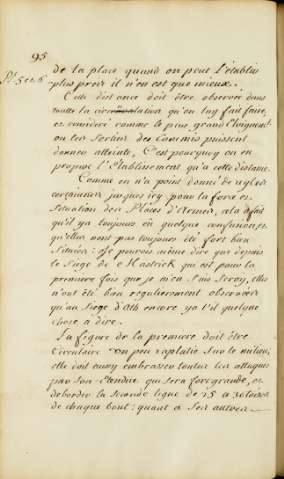 95
Pl. 5 et 6
de la place quand on peut l'establir
plus prez il n'en est que mieux.
Cette distance doit être observée dans
toutte la circonvalation qu'on luy fait faire,
et considéré comme le plus grand éloignem.t
ou les sorties des Ennemis puissent
donner atteinte, C'est pourquoy on en
propose l'Etablissement qu'a cette distance.
Comme on n'a point donné de regles
certaines jusques icy pour la force et
situation des Places d'Armes, cela a fait
qu'il y a toujours eu quelque confusion, et
qu'elles n'ont pas toujours été fort bien
situées: Je pourois même dire que depuis
le Siege de Mastrick qui est pour la
premiere fois que je m'en suis servy, elles
n'ont été bien regulierement observées
qu'au Siege d'Ath encore y a t'il quelque
chose a dire.
La figure de la premiere doit être
Circulaire un peu raplatie sur le milieu;
elle doit aussy embrasser toutes les attaques
par son étendue qui sera fort grande, et
deborder la seconde ligne de 25 a 30 toises
de chaque bout: quant a ses autres